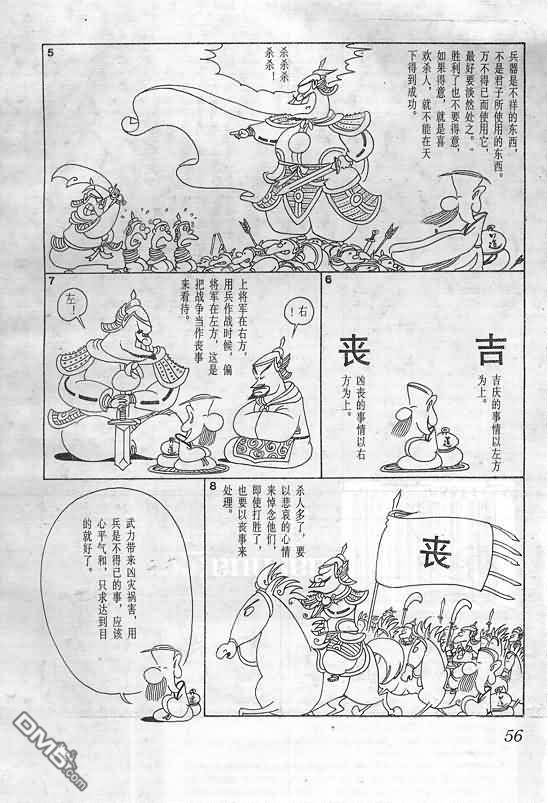 5
兵器是不祥的东西，
不是君子所使用的东西。
万不得已而使用它，
最好要淡然处之。
胜利了也不要得意，
如果得意，就是喜
欢杀人，就不能在天
下得到成功。
杀杀杀
杀杀！
6
吉
吉庆的事情以左方
为上。
丧
凶丧的事情以右
方为上。
道
7
右！
上将军在右方，
用兵作战时候，偏
将军在左方，这是
把战争当作丧事
来看待。
左！
8
丧
杀人多了，要
以悲哀的心情
来悼念他们，
即使打胜了，
也要以丧事来
处理。
武力带来凶灾祸害，用
兵是不得已的事，应该
心平气和，只求达到目
的就好了。
56